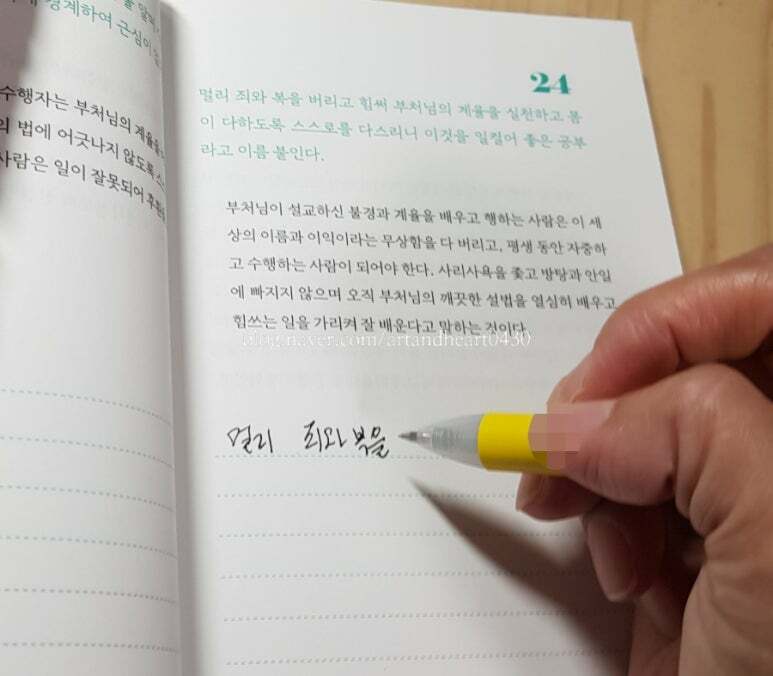 경계하여 근심이
수행자는 부처님의 계율을
의 법에 어긋나지 않도록 스
사람은 일이 잘못되어
24
멀리 죄와 복을 버리고 힘써 부처님의 계율을 실천하고 몸
이 다하도록 스스로를 다스리니 이것을 일컬어 좋은 공부
라고 이름 붙인다.
부처님이 설교하신 불경과 계율을 배우고 행하는 사람은 이 세
상의 이름과 이익이라는 무상함을 다 버리고, 평생 동안 자중하
고 수행하는 사람이 되어야 한다. 사리사욕을 좇고 방탕과 안일
에 빠지지 않으며 오직 부처님의 깨끗한 설법을 열심히 배우고
힘쓰는 일을 가리켜 잘 배운다고 말하는 것이다.
blog.naver.com/artandheart0430
멀리 죄와 복을